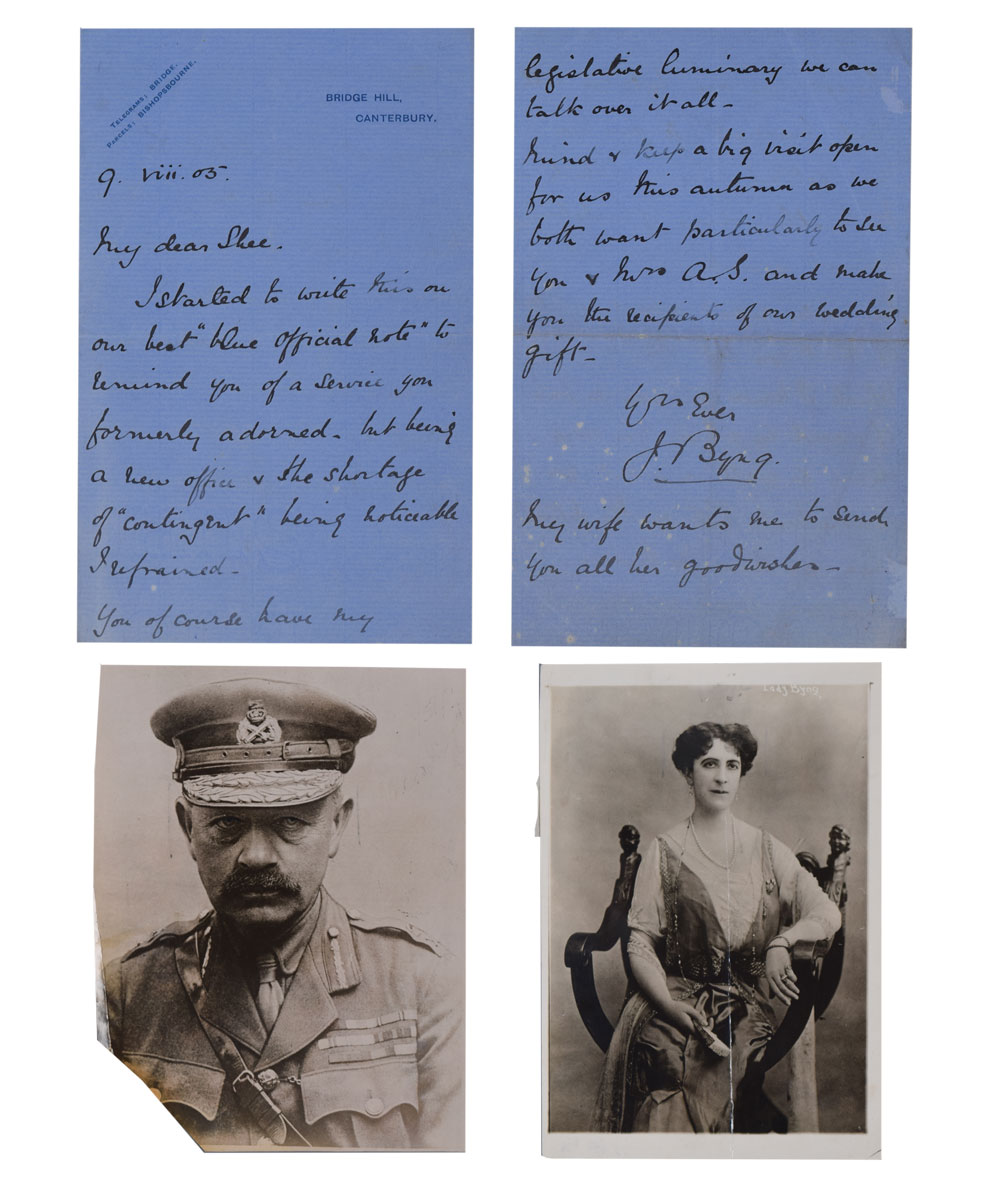 TELEGRAMS: BRIDGE.
PARCELS: BISHOPSBOURNE.
BRIDGE HILL,
CANTERBURY.
9. viii. 05.
My dear Shee.
I started to write this on
our best "blue official note" to
remind you of a service you
formerly adorned - but being
a new office & the shortage
of "contingent" being noticeable
I refrained -
You of course have my
legislative luminary we can
talk over it all -
Mind & keep a big visit open
for us this autumn as we
both want particularly to see
you & Mrs A. S. and make
you the recipients of our wedding
gift -
Yrs Ever
J. Byng.
My wife wants me to send
you all her goodwishes -
Lady Byng